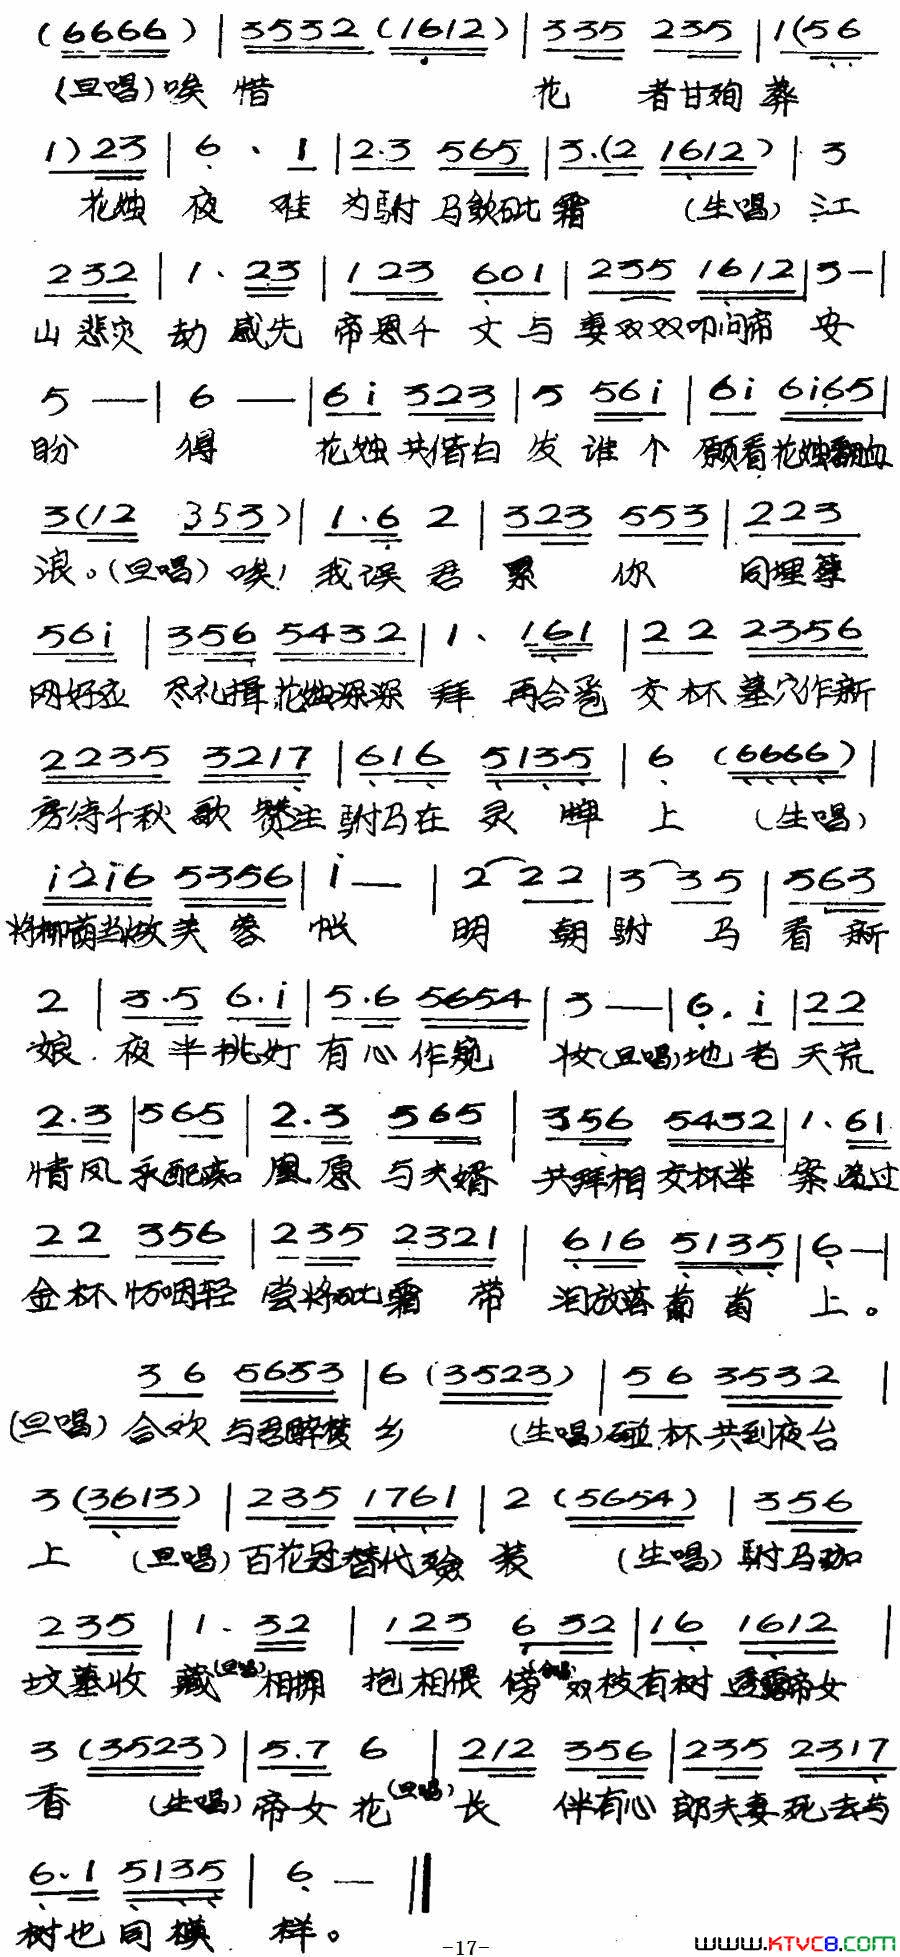 (6666) | 3532 (1612) | 335 235 | 1(56
(旦唱)唉惜 花 者甘殉葬
1)23 | 6 · 1 | 2·3 565 | 3·(2 1612) | 3
花烛夜难为驸马饮砒霜 (生唱)江
232 | 1 · 23 | 123 601 | 235 1612 | 3 — |
山悲灾劫感先帝恩千丈与妻双双叩问帝安
5 — | 6 — | 6i 323 | 5 56i | 6i 6i65 |
盼得花烛共偕白发谁个愿看花烛翻血
3(12 353) | 1·6 2 | 323 553 | 223
浪。(旦唱)唉!我误君累你同埋孽
56i | 356 5432 | 1· 161 | 22 2356
网好应尽礼揖花烛深深拜再合卺交杯墓穴作新
2235 3217 | 616 5135 | 6 (6666) |
房待千秋歌赞注驸马在灵牌上(生唱)
i2i6 5356 | i — | 2 22 | 3 35 | 563
将柳荫当做芙蓉帐明朝驸马看新
2 | 3·5 6·i | 5·6 5654 | 3 — | 6· i | 22
娘夜半挑灯有心作窥妆(旦唱)地老天荒
2·3 | 565 | 2·3 565 | 356 5432 | 1·61
情凤永配痴凰愿与夫婿共拜相交杯举案递过
22 356 | 235 2321 | 616 5135 | 6 — |
金杯慌咽轻尝将砒霜带泪放落葡萄上。
36 5653 | 6 (3523) | 56 3532 |
(旦唱)合欢与君醉梦乡 (生唱)碰杯共到夜台
3 (3613) | 235 1761 | 2 (5654) | 356
上 (旦唱)百花冠替代殓装 (生唱)驸马珈
235 | 1· 32 | 123 6 32 | 16 1612 |
坟墓收藏(旦唱)相拥抱相偎傍(合唱)双枝有树透露帝女
3 (3523) | 5·7 6 | 212 356 | 235 2317
香 (生唱)帝女花(旦唱)长伴有心郎夫妻死去与
6·1 5135 | 6 — ||
树也同模样。
-17-
WWW.KTVC8.COM